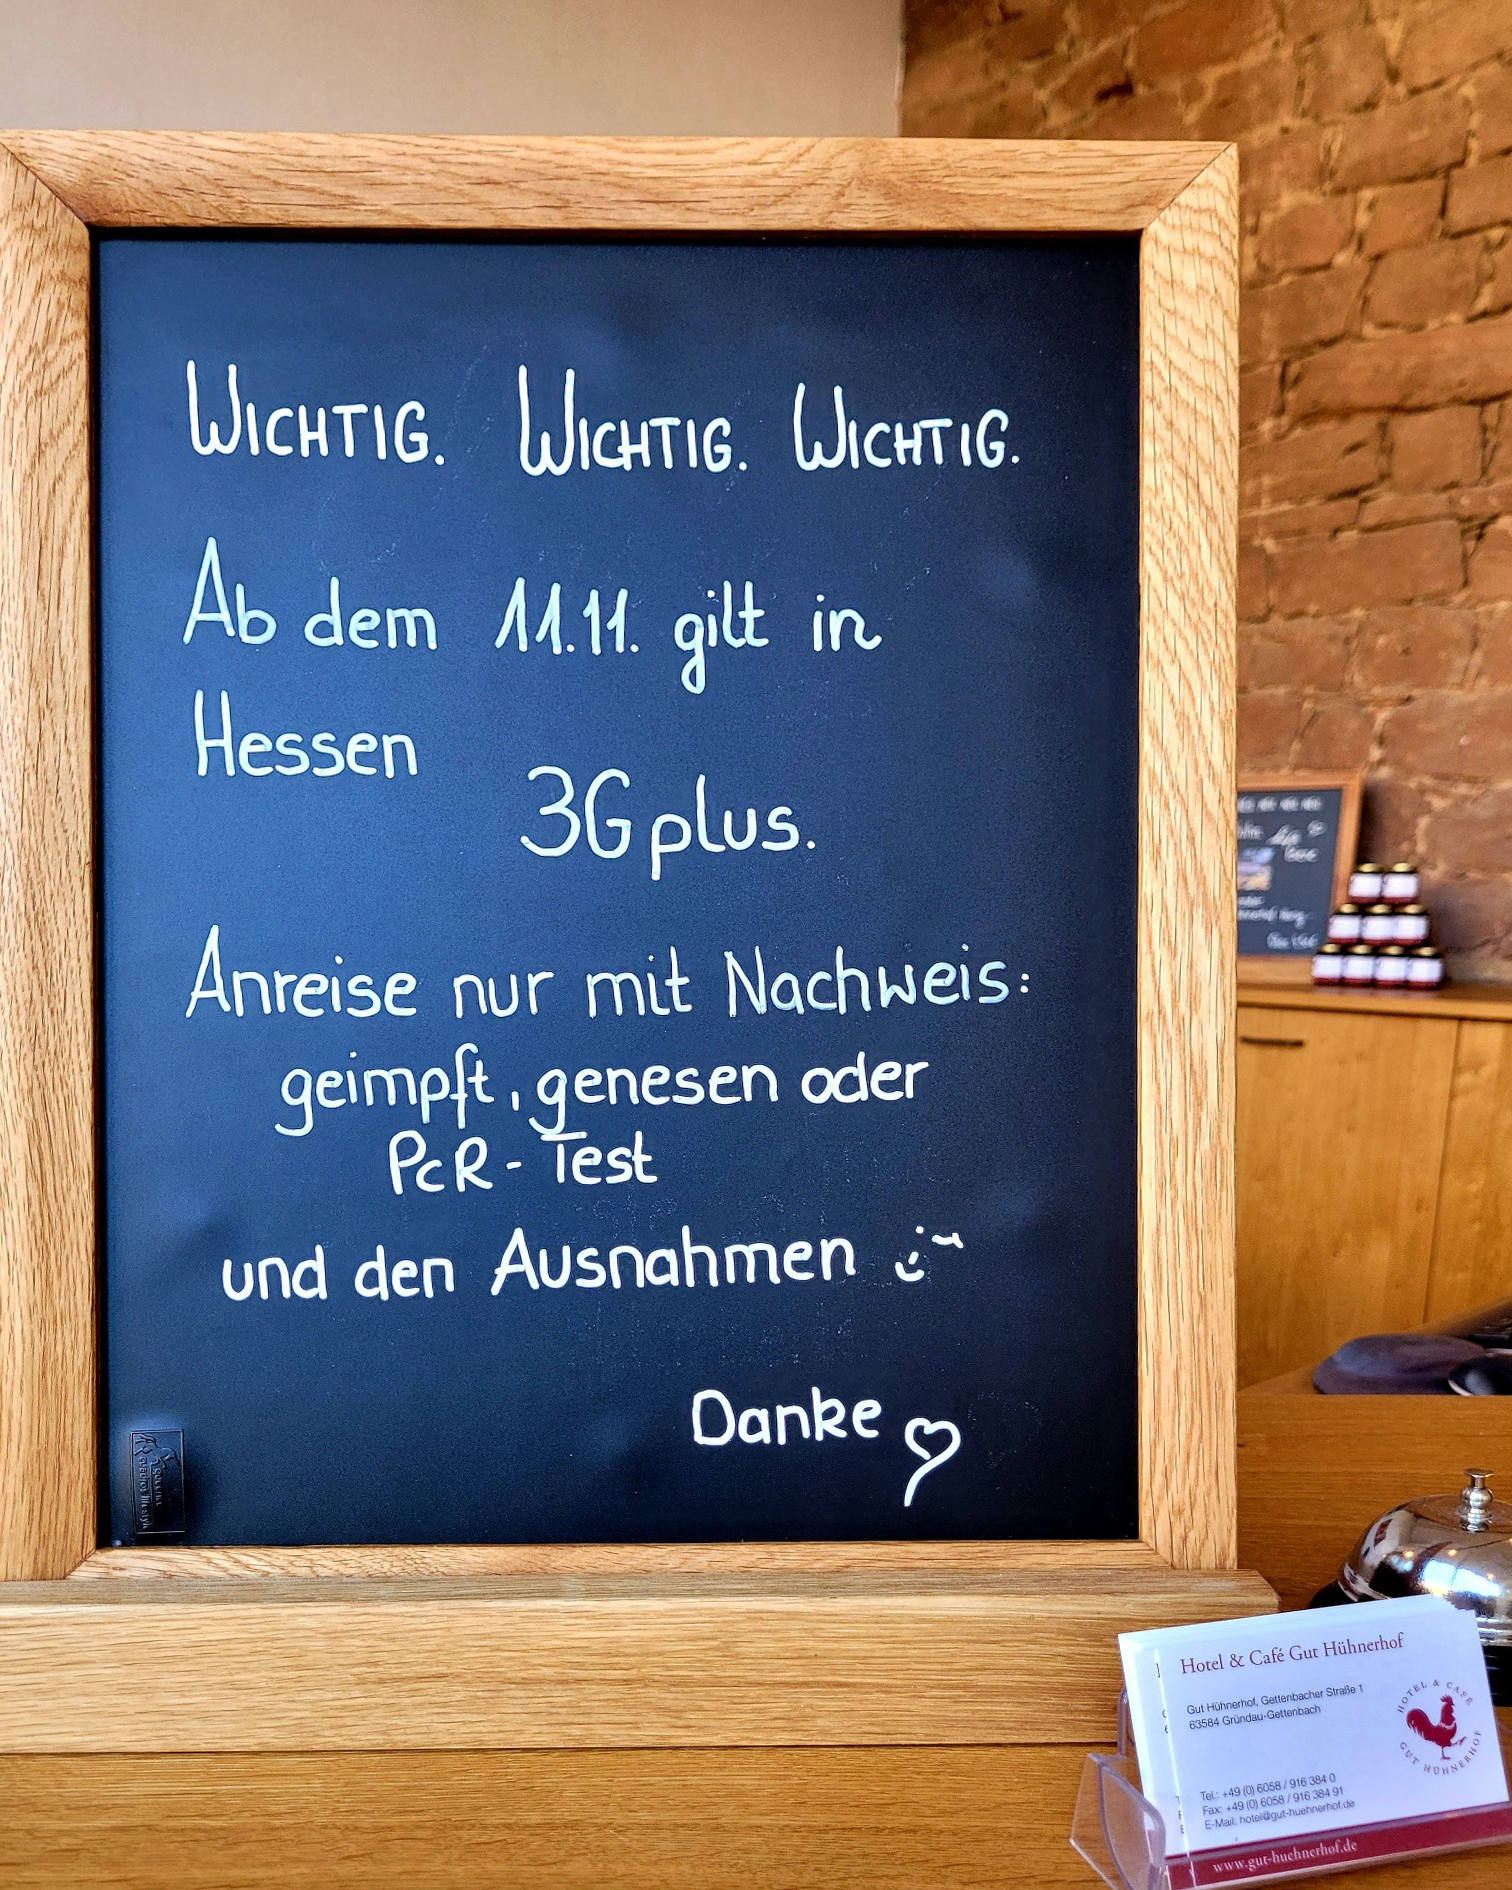 WICHTIG. WICHTIG. WICHTIG.
Ab dem 11.11. gilt in
Hessen
3G plus.
Anreise nur mit Nachweis:
geimpft, genesen oder
PcR-Test
und den Ausnahmen
Danke
Hotel & Café Gut Hühnerhof
Gut Hühnerhof, Gettenbacher Straße 1
63584 Gründau-Gettenbach
HOTEL & CAFÉ
GUT HÜHNERHOF
Tel.: +49 (0) 6058 / 916 384 0
Fax: +49 (0) 6058 / 916 384 91
E-Mail: hotel@gut-huehnerhof.de
www.gut-huehnerhof.de